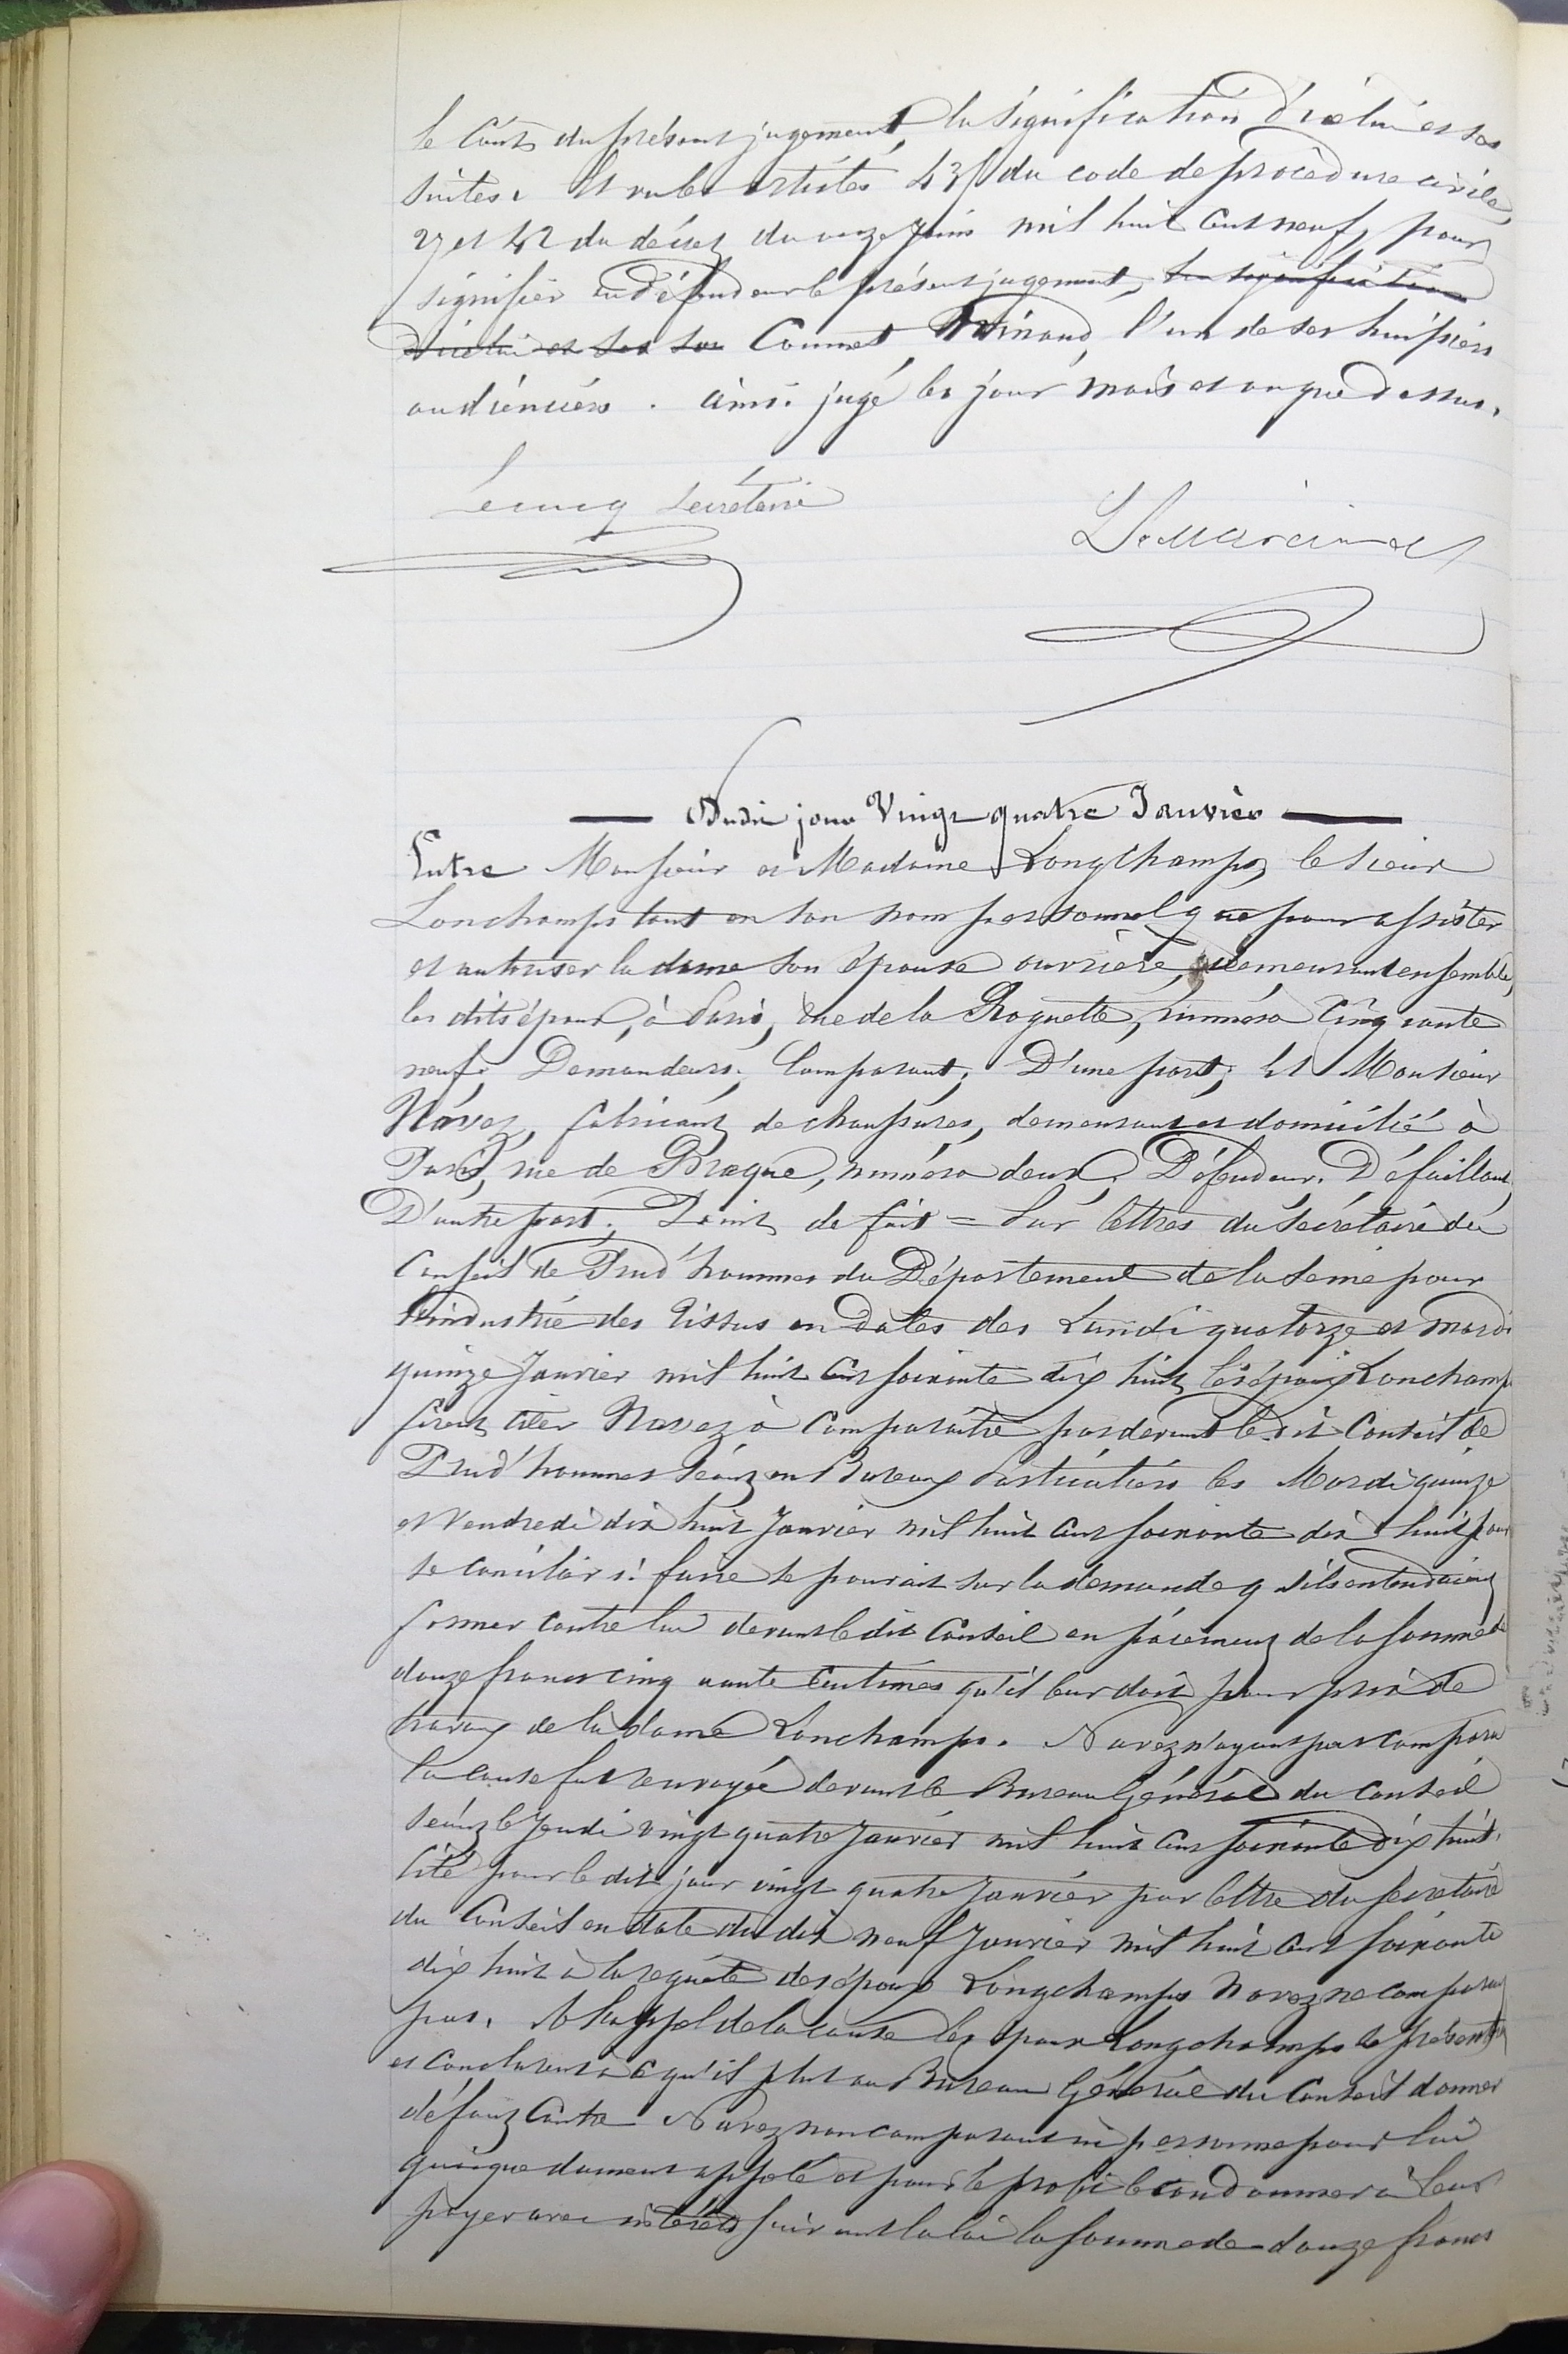 le coût du présent jugement, la signification d'icelui et ses
suites. Et vu les articles 435 du code de procédure civile,
27 et 42 du décret du onze Juin mil huit cent neuf, pour
signifier au défendeur le présent jugement, la signification
d'icelui et ses sui Commet, l'un de ses huissiers
audienciers. ainsi jugé les jour mois et an que dessus.
Lecucq secrétaire
Dudit jour Vingt quatre Janvier
Entre Monsieur et Madame Longchamps, le sieur
Lonchamps tant en son nom personnel que pour assister
et autoriser la dame son épouse ouvrière, demeurant ensemble,
les dits époux, à Paris, rue de la Roquette, numéro Cinquante
neuf. Demandeurs. Comparant. D'une part; Et Monsieur
Navez, fabricant de chaussures, demeurant et domicilié à
Paris, rue de Braque, numéro deux. Défendeur. Défaillant,
D'autre part. Point de fait = Sur lettres du secrétaire du
Conseil de Prud'hommes du Département de la Seine pour
l'industrie des Tissus en dates des Lundi quatorze et mardi
quinze Janvier mil huit cent soixante dix huit les époux Lonchamps
firent citer Navez à comparaître par devant le dit Conseil de
Prud'hommes séant en Bureaux Particuliers les Mardi quinze
et Vendredi dix huit Janvier mil huit cent soixante dix huit pour
se concilier si faire se pouvait sur la demande qu'ils entendaient
former contre lui devant le dit Conseil en paiement de la somme de
douze francs cinquante centimes qu'il leur doit pour prix de
travaux de la dame Lonchamps. Navez n'ayant pas comparu
la cause fut renvoyée devant le Bureau Général du Conseil
séant le Jeudi vingt quatre Janvier mil huit cent soixante dix huit.
Cité pour le dit jour vingt quatre Janvier par lettre du secrétaire
du Conseil en date du dix neuf Janvier mil huit cent soixante
dix huit à la requête des époux Longchamps Navez ne comparut
pas. A l'appel de la cause les époux Longchamps se présentèrent
et conclurent à ce qu'il plut au Bureau Général du Conseil donner
défaut contre Navez non comparant ni personne pour lui
quoique dument appelé et pour le profit le condamner à leur
payer avec intérêts suivant la loi la somme de douze francs